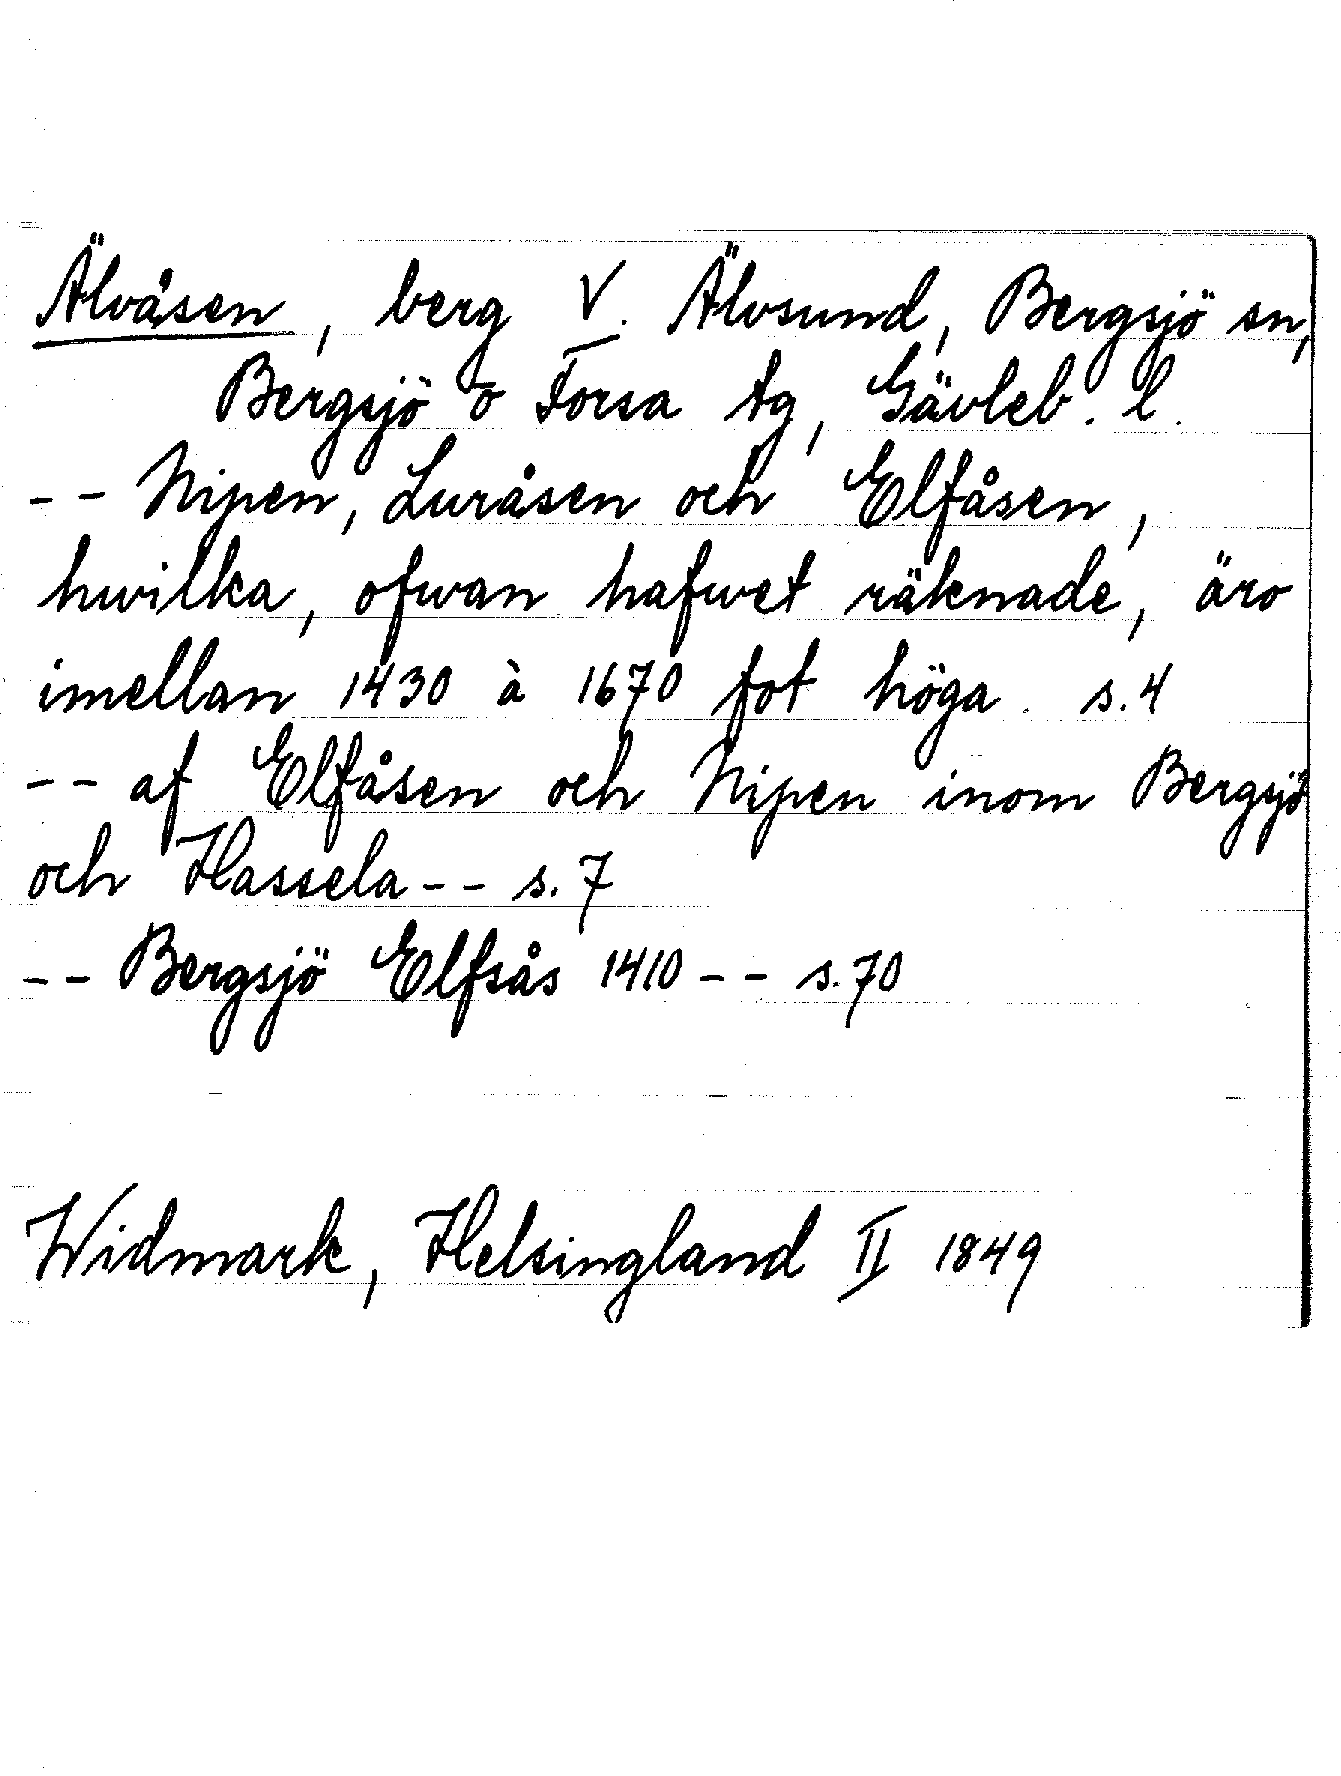 Älvåsen, berg V. Älvsund, Bergsjö sn,
Bergsjö o Forsa tg, Gävleb. l.
-- Nipen, Luråsen och Elfåsen,
hwilka, ofwan hafwet räknade, äro
imellan 1430 à 1670 fot höga. s. 4
-- af Elfåsen och Nipen inom Bergsjö
och Hassela -- s. 7
-- Bergsjö Elfsås 1410 -- s. 70
Widmark, Helsingland II 1849